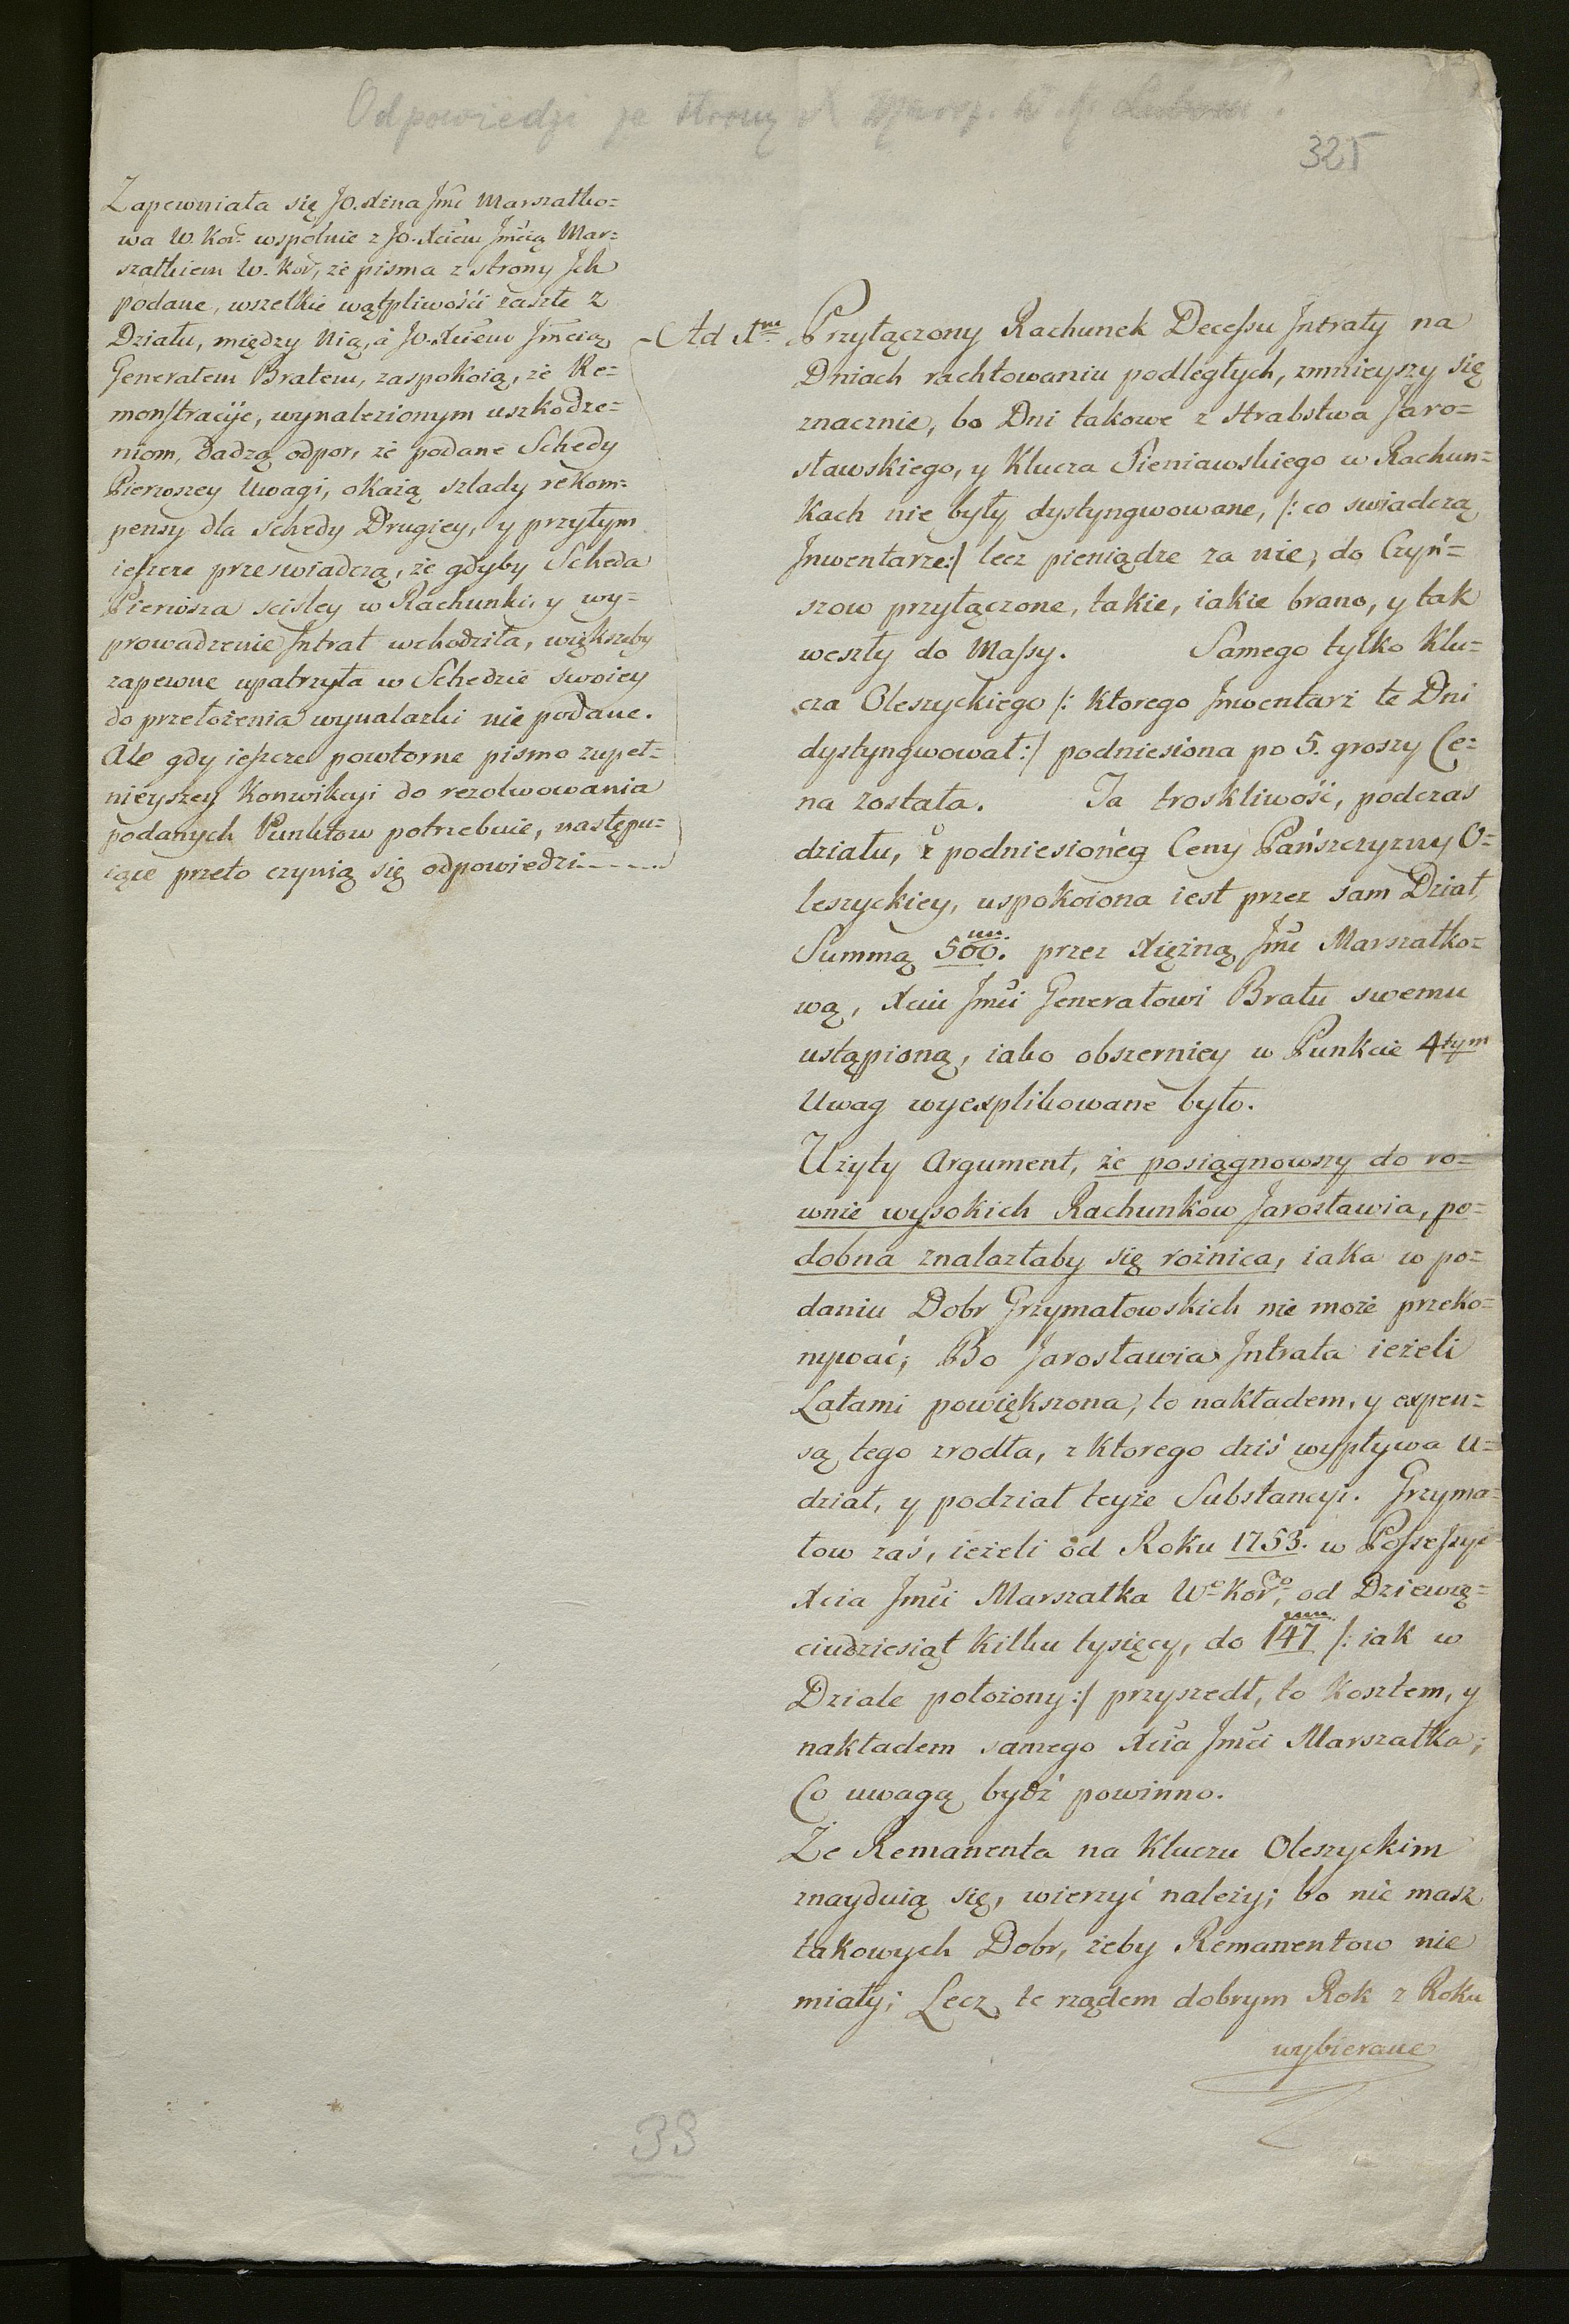 Odpowiedzi ze strony
325
Zapewniała się JO. Xżna Jmć Marszałko=
wa W. Kor. wspolnie z JO. Xciem Jmcią Mar=
szałkiem W. Kor, że pisma z strony Jch
podane, wszelkie wątpliwości zaszłe z
Działu, między Nią, a JO. Xciem Jmcią
Generałem Bratem, zaspokoią, że Re=
monstracije, wynalezionym uszkodze=
niom, dadzą odpor, że podane Schedy
Pierwszey Uwagi, okażą szlady rekom=
pensy dla Schedy Drugiey, y przytym
ieszcze przeswiadczą, że gdyby Scheda
Pierwsza scisley w Rachunki, y wy=
prowadzenie Jntrat wchodziła, większeby
zapewne upatrzyła w Schedzie swoiey
do przełożenia wynalazki nie podane.
Ale gdy ieszcze powtorne pismo zupeł=
nieyszey Konwikcyi do rezolwowania
podanych Punktow potrzebuie, następu=
iące przeto czynią się odpowiedzi
Ad 1m Przyłączony Rachunek Decessu Jntraty na
Dniach rachtowaniu podległych, zmnieyszy się
znacznie, bo Dni takowe z Hrabstwa Jaro=
sławskiego, y Klucza Sieniawskiego w Rachun=
kach nie były dystyngwowane, /: co swiadczą
Jnwentarze:/ lecz pieniądze za nie, do Czyń=
szow przyłączone, takie, iakie brano, y tak
weszły do Massy. Samego tylko Klu=
cza Oleszyckiego /: ktorego Jnwentarz te Dni
dystyngwował:/ podniesiona po 5. groszy Ce=
na została. Ta troskliwość, podczas
działu, z podniesioneg Ceny Pańszczyzny O=
leszyckiey, uspokoiona iest przez sam Dział,
Summą 500. przez Xiężną Jmć Marszałko=
wą, Xciu Jmci Generałowi Bratu swemu
ustąpioną, iako obszerniey w Punkcie 4tym
Uwag wyexplikowane było.
Użyty Argument, że posiągnowszy do ro=
wnie wysokich Rachunkow Jarosławia, po=
dobna znalazłaby się rożnica, iaka w po=
daniu Dobr Grzymałowskich nie może przeko=
nywać; Bo Jarosławia Jntrata ieżeli
Latami powiększona, to nakładem, y expen=
są tego zrodła, z ktorego dziś wypływa U=
dział, y podział teyże Substancyi. Grzyma=
łow zaś, ieżeli od Roku 1753. w Possessyi
Xcia Jmci Marszałka Wo Korgo, od Dziewię=
ciudziesiąt kilku tysięcy, do 147 /: iak w
Dziale położony:/ przyszedł, to kosztem, y
nakładem samego Xcia Jmci Marszałka;
Co uwagą bydź powinno.
Że Remanenta na Kluczu Oleszyckim
znayduią się, wierzyć należy; bo nie masz
takowych Dobr, żeby Remanentow nie
miały; Lecz te rządem dobrym Rok z Roku
wybierane
33